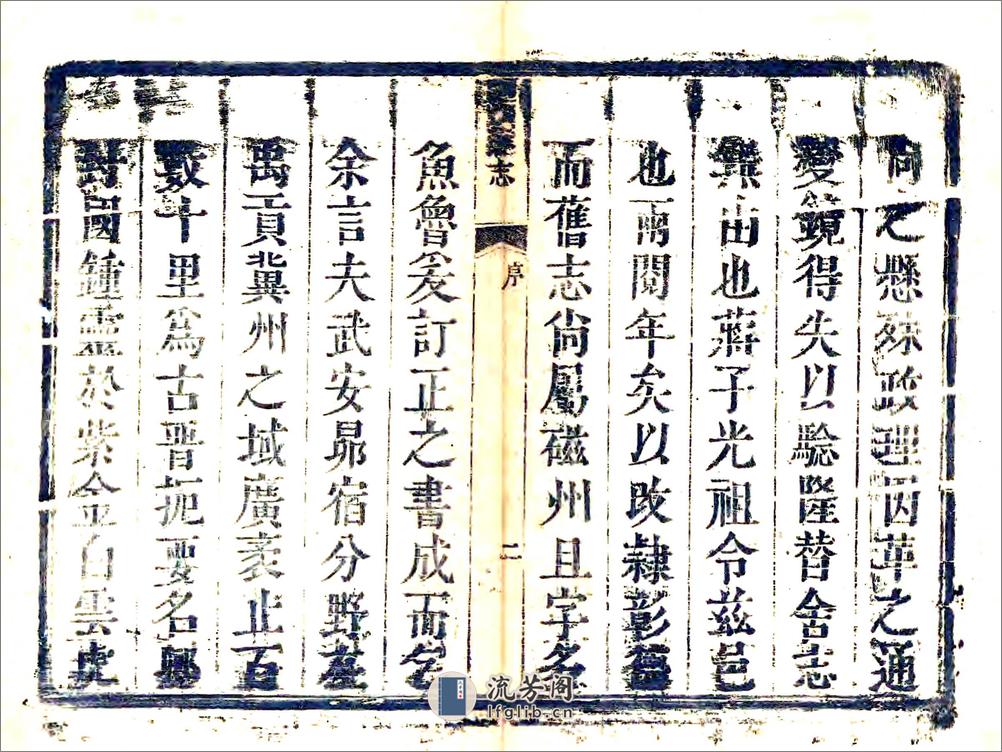 尚之懸殊政理因革之通
變鏡得失以驗隆替舍志
無由也蔣子光祖令茲邑
也兩閱年矣以改隸彰德
而舊志尙屬磁州且字多
志
序
二
魚魯爰訂正之書成而乞
余言夫武安昴宿分野在
禹貢冀州之域廣袤止百
數十里爲古晋扼要名鄉
封國鍾靈於紫金白雲虎
流芳阁
lfglib.cn